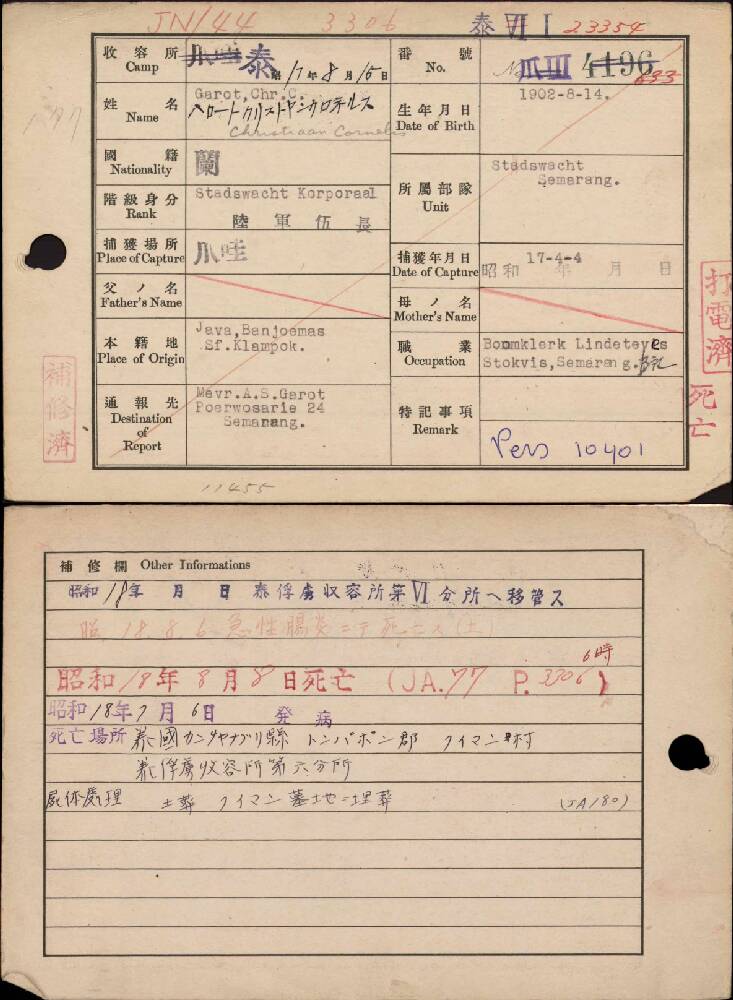 JN/44 3306 泰VI I 23354
收容所 Camp 爪哇 泰 昭17年8月15日
番號 No. No. 爪III 4196 633
姓名 Name Garot,Chr.C.
ヘロート クリストヤン カロネルス
Christiaan Cornelis
生年月日 Date of Birth 1902-8-14.
國籍 Nationality 蘭
所屬部隊 Unit Stadswacht
Semarang.
階級身分 Rank Stadswacht Korporaal
陸軍伍長
捕獲場所 Place of Capture 爪哇
捕獲年月日 Date of Capture 昭和 17-4-4 年 月 日
父ノ名 Father's Name
母ノ名 Mother's Name
本籍地 Place of Origin Java,Banjoemas
Sf.Klampok.
職業 Occupation Bommklerk Lindeteves
Stokvis,Semarang.
通報先 Destination of Report Mevr.A.S.Garot
Poerwosarie 24
Semarang.
特記事項 Remark Pers 10401
補修濟
打電濟
死亡
11455
補修欄 Other Informations
昭和18年 月 日 泰俘虜収容所第VI分所ヘ移管ス
昭18.8.6 急性腸炎ニテ死亡ス(土)
6時
昭和18年8月8日死亡 (JA.77 P.3306)
昭和18年7月6日 発病
死亡場所 泰國カンチャナブリ縣 トンパポン郡 クイマン村
泰俘虜收容所第六分所
屍体処理 土葬 クイマン墓地ニ埋葬 (JA180)